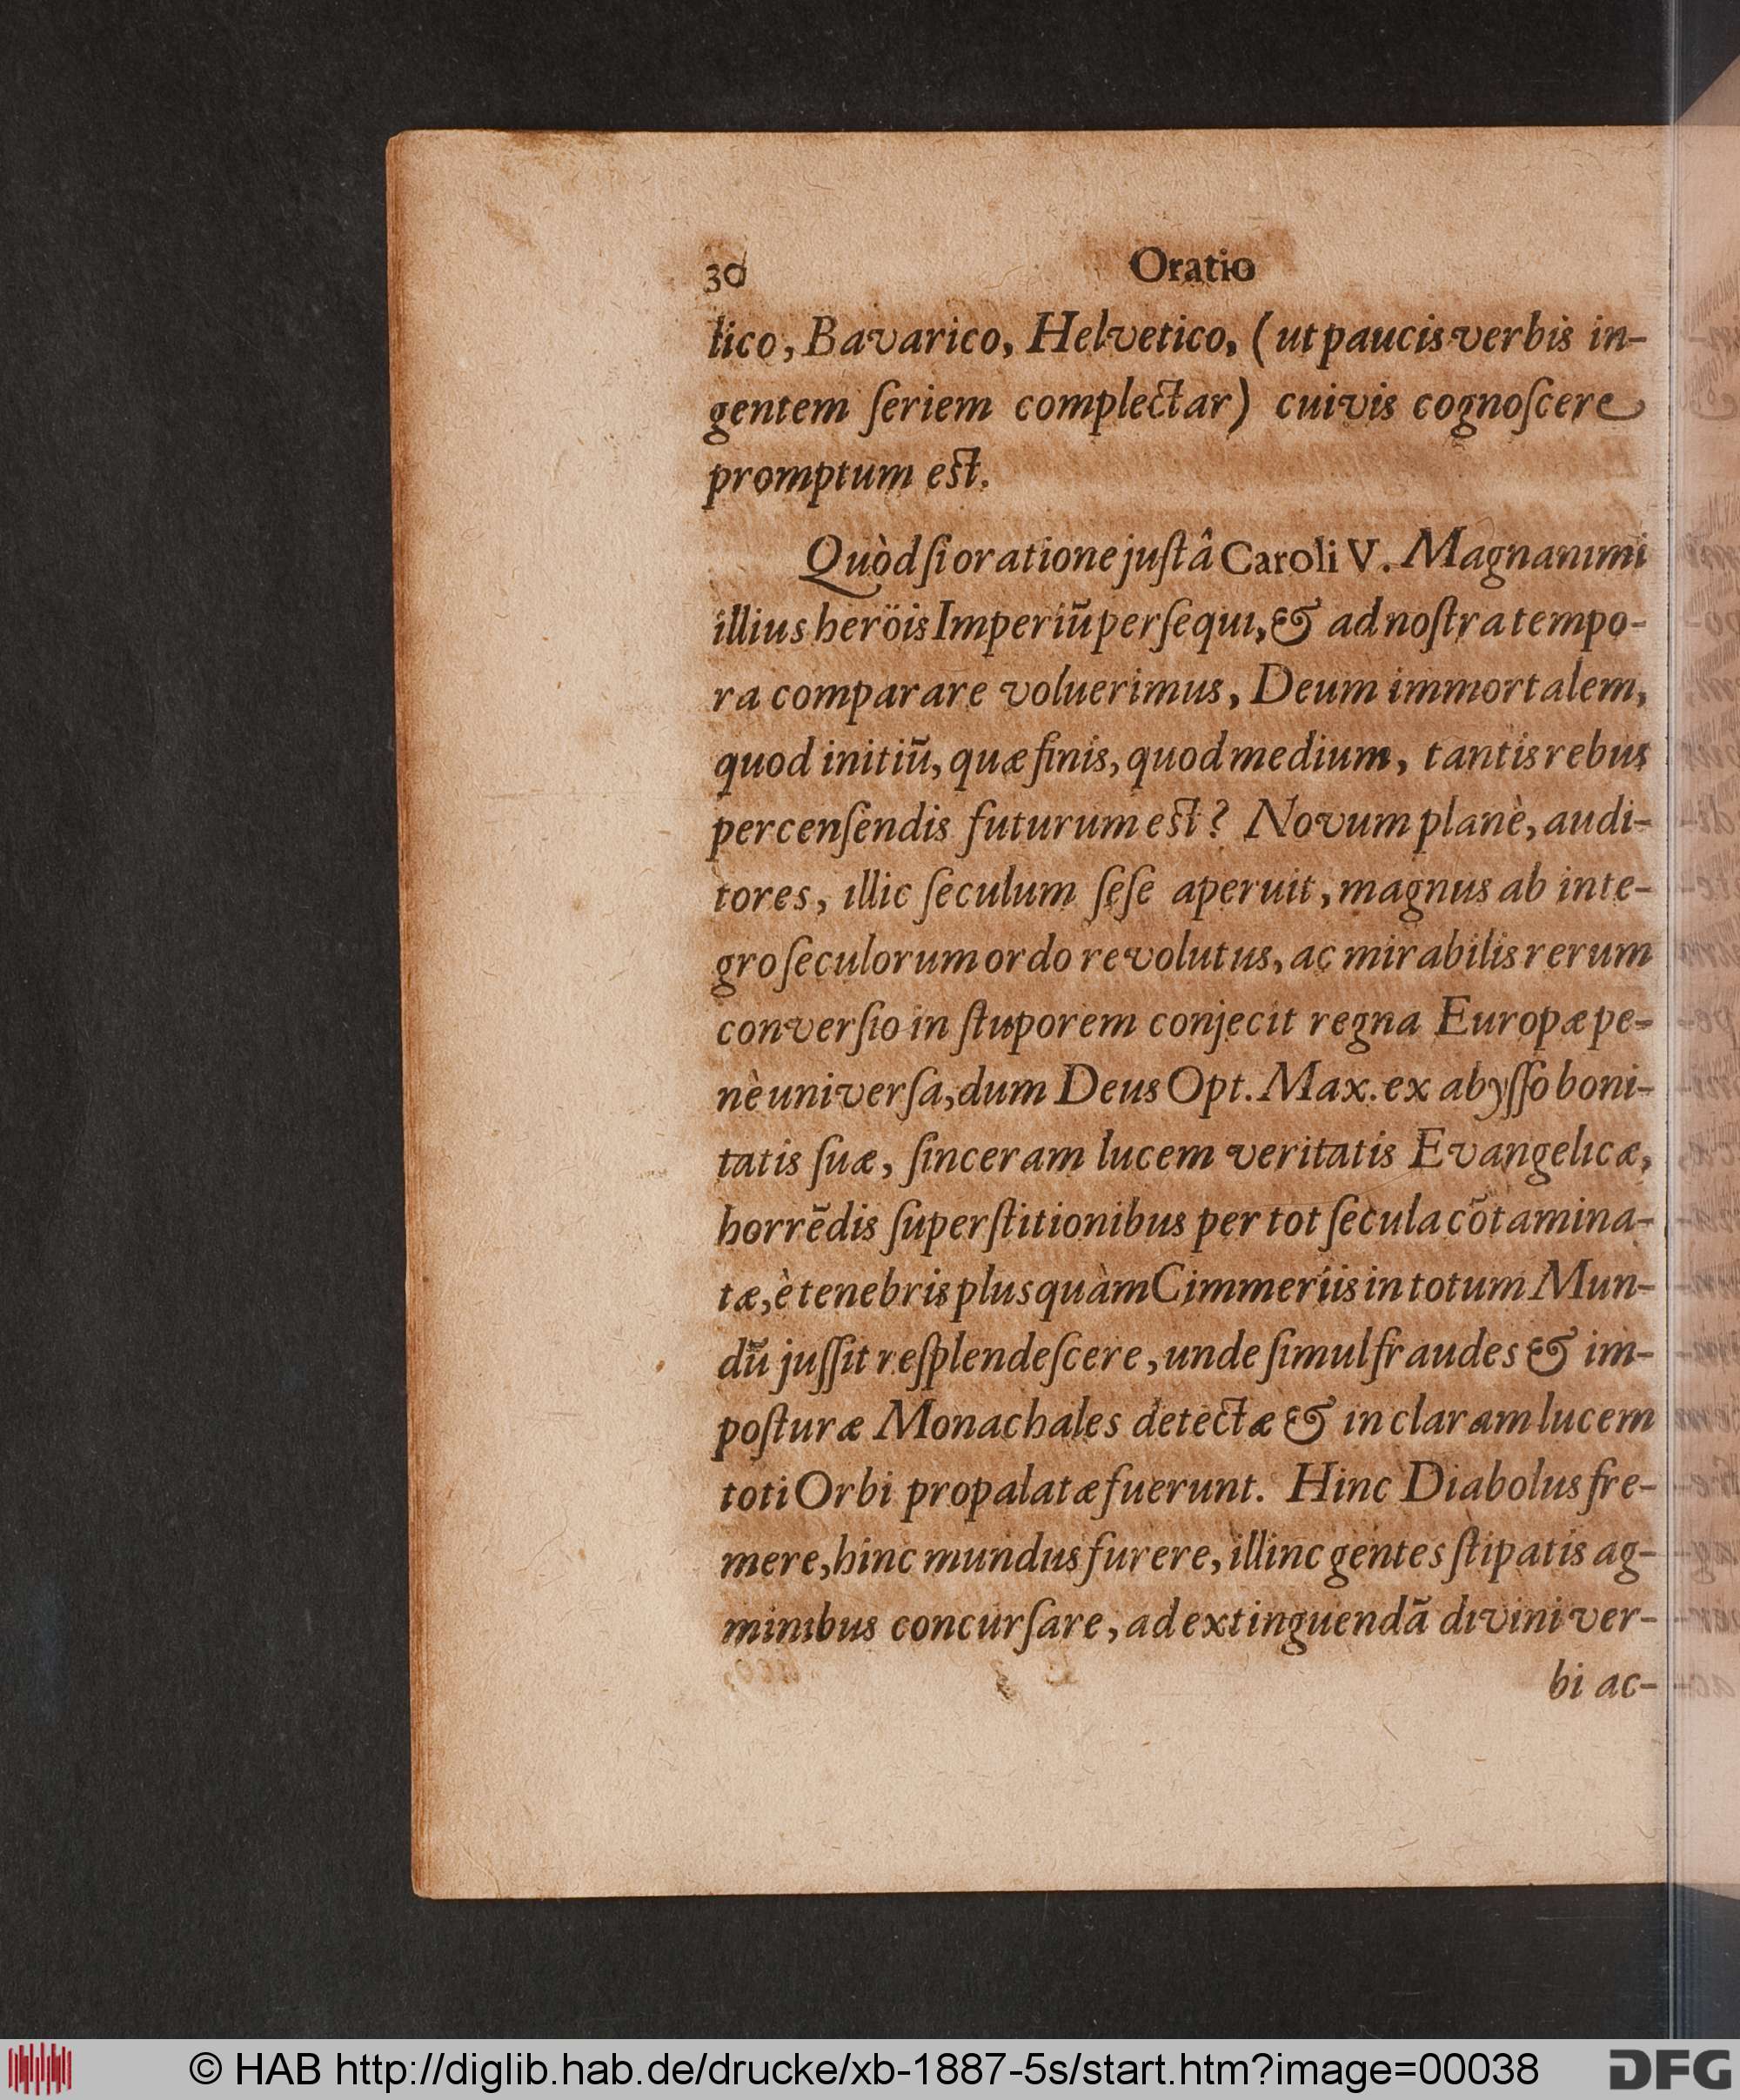 30 Oratio
lico, Bavarico, Helvetico, (ut paucis verbis in-
gentem ſeriem complectar) cuivis cognoſcere
promptum est.
Quòd ſi oratione juſtâ Caroli V. Magnanimi
illius heröis Imperiũ perſequi, & ad noſtra tempo-
ra comparare voluerimus, Deum immortalem,
quod initiũ, quæ finis, quod medium, tantis rebus
percenſendis futurum est? Novum planè, audi-
tores, illic ſeculum ſeſe aperuit, magnus ab inte-
gro ſeculorum ordo revolutus, ac mirabilis rerum
converſio in ſtuporem conjecit regna Europæ pe-
nè univerſa, dum Deus Opt. Max. ex abyſſo boni-
tatis ſuæ, ſinceram lucem veritatis Evangelicæ,
horrẽdis ſuperſtitionibus per tot ſecula cõtamina-
tæ, è tenebris plusquàm Cimmeriis in totum Mun-
dũ juſſit reſplendeſcere, unde ſimul fraudes & im-
poſturæ Monachales detectæ & in claram lucem
toti Orbi propalatæ fuerunt. Hinc Diabolus fre-
mere, hinc mundus furere, illinc gentes ſtipatis ag-
minibus concurſare, ad extinguendã divini ver-
bi ac-
© HAB http://diglib.hab.de/drucke/xb-1887-5s/start.htm?image=00038
DFG